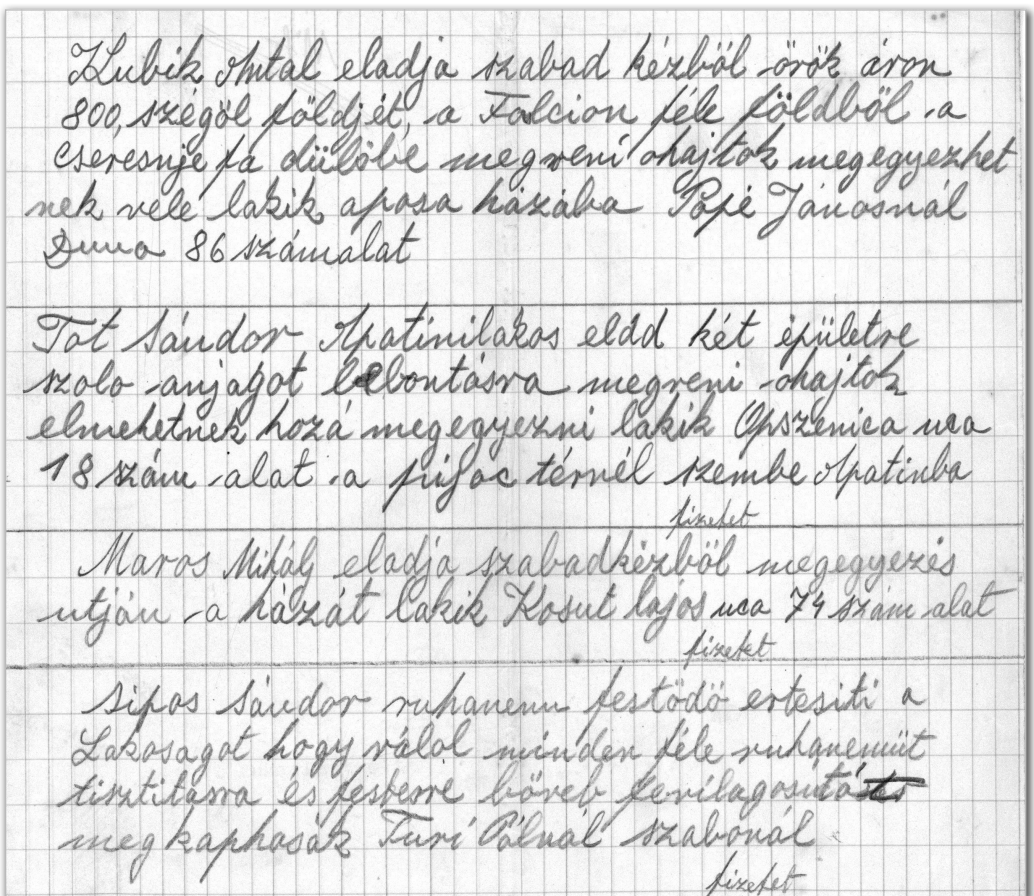 Kubik Antal eladja szabad kézből örök áron
800, szégöl földjét, a Falcion féle földből a
cseresnje fa dülőbe megveni ohajtok megegyezhet
nek vele lakik aposa házába Papé Jánosnál
Duna 86 számalat
Tot Sándor Apatinilakos elád két épületre
szolo anjagot lebontásra megveni ohajtok
elmehetnek hozá megegyezni lakik Opszenica uca
18 szám alat a piac térnél szembe Apatinba
fizetet
Maros Mihálj eladja szabadkézből megegyezés
utján a házát lakik Kosut lajos uca 74 szám alat
fizetet
Sipos Sándor ruhanemu festödö ertesiti a
Lakosagot hogy válal minden féle ruhanemüt
tisztitásra és festesre böveb fevilagositást
meg kaphasák Turi Pálnál szabonál
fizetet